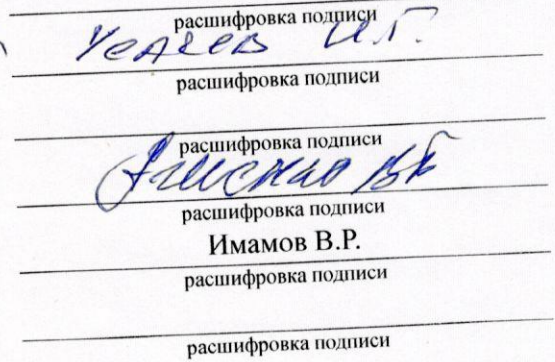 расшифровка подписи
И.Г.
расшифровка подписи
расшифровка подписи
расшифровка подписи
Имамов В.Р.
расшифровка подписи
расшифровка подписи